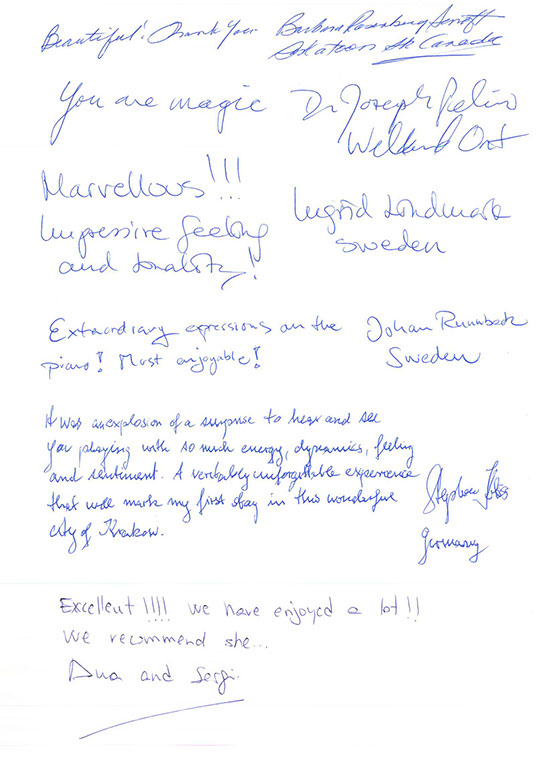 Beautiful! Thank you Barbara Rosenberg
Saskatoon Sk Canada
You are magic Dr Joseph
Welland Ont
Marvellous!!!
Impressive feeling
and tonality!
Ingrid Lindmark
Sweden
Extraordiary expressions on the
piano! Most enjoyable!
Johan Runnbeck
Sweden
It was an explosion of a surprise to hear and see
you playing with so much energy, dynamics, feeling
and sentiment. A veritably unforgettable experience
that will mark my first stay in this wonderful
city of Krakow.
Stephan
Germany
Excellent !!!! we have enjoyed a lot!!
We recommend she...
Ana and Sergi.